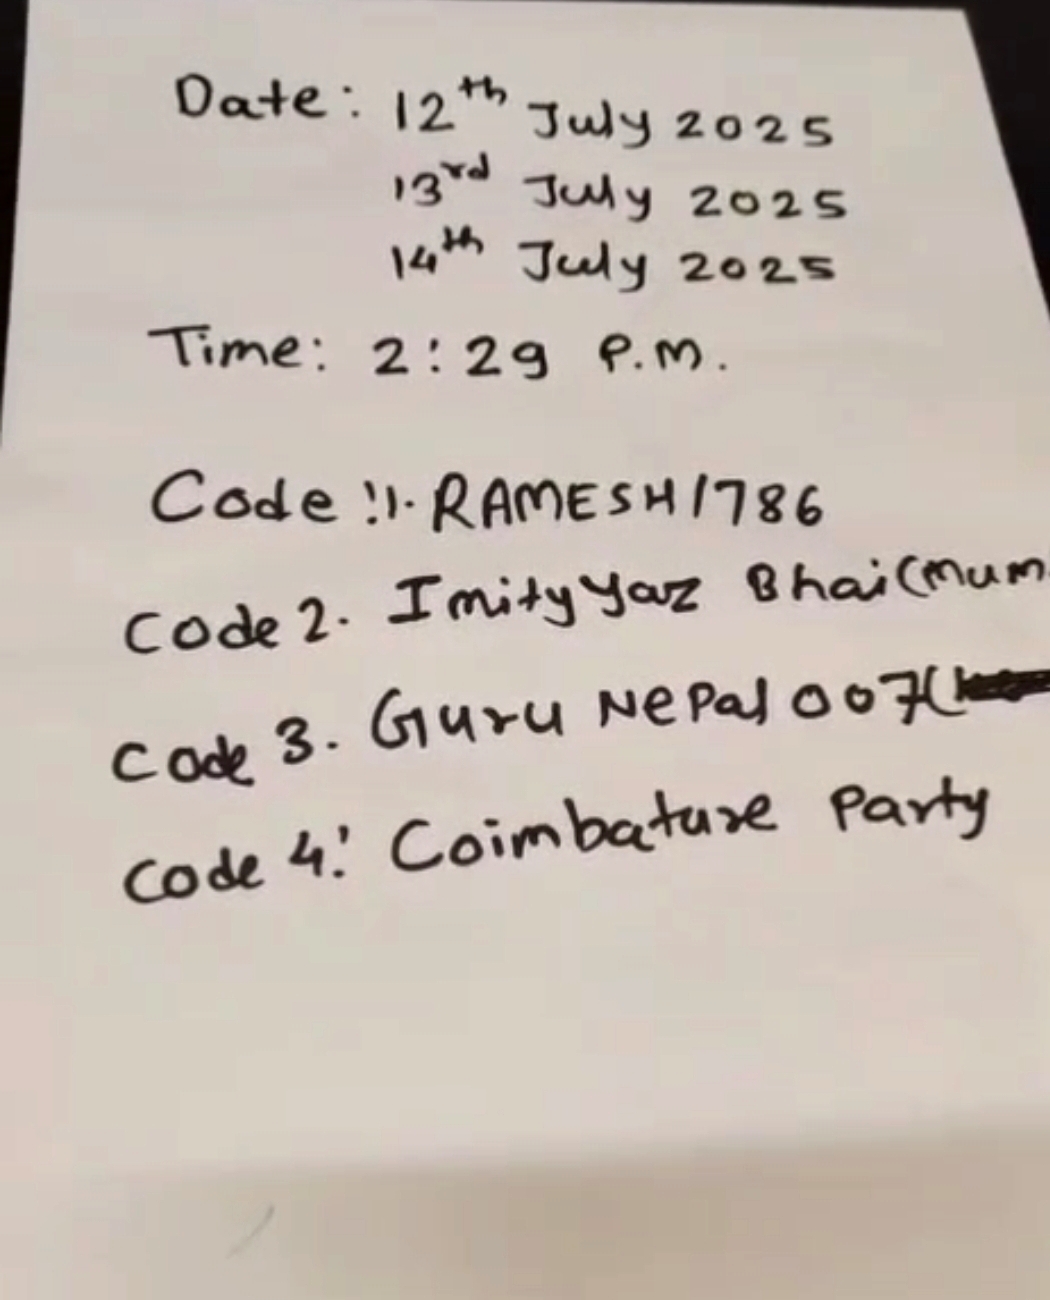 Date: 12th July 2025
13rd July 2025
14th July 2025
Time: 2:29 P.M.
Code !1. RAMESH1786
Code 2. Imityyaz Bhai (Mum
Code 3. Guru Nepal 007(
Code 4: Coimbature Party